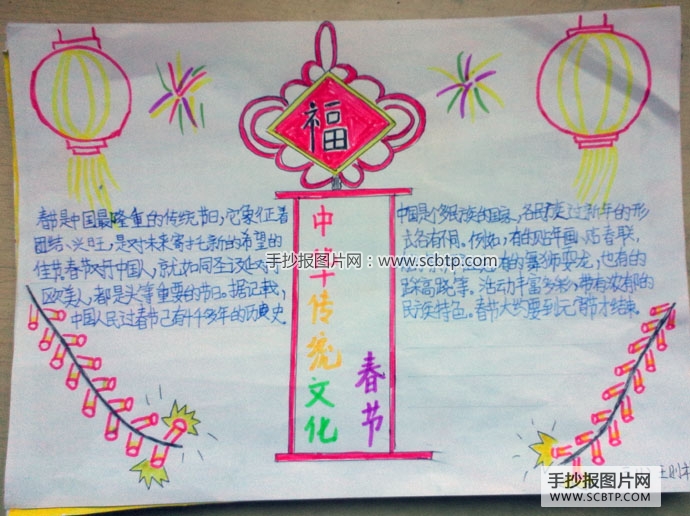 福
中华传统文化
春节
春节是中国最隆重的传统节日,它象征着
团结、兴旺,是对未来寄托新的希望的
佳节春节对于中国人,就如同圣诞
欧美人,都是头等重要的节日。据记载,
中国人民过春节已有4千多年的历史
中国是个多民族的国家,各民族过新年的形
式各有同。例如,有的贴年画、贴春联,
有的舞狮耍龙,也有的
踩高跷等。活动丰富多彩,带有浓郁的
民族特色。春节大约要到元宵节才结束
手抄报图片网:www.scbtp.com
手抄报图片网
WWW.SCBTP.COM